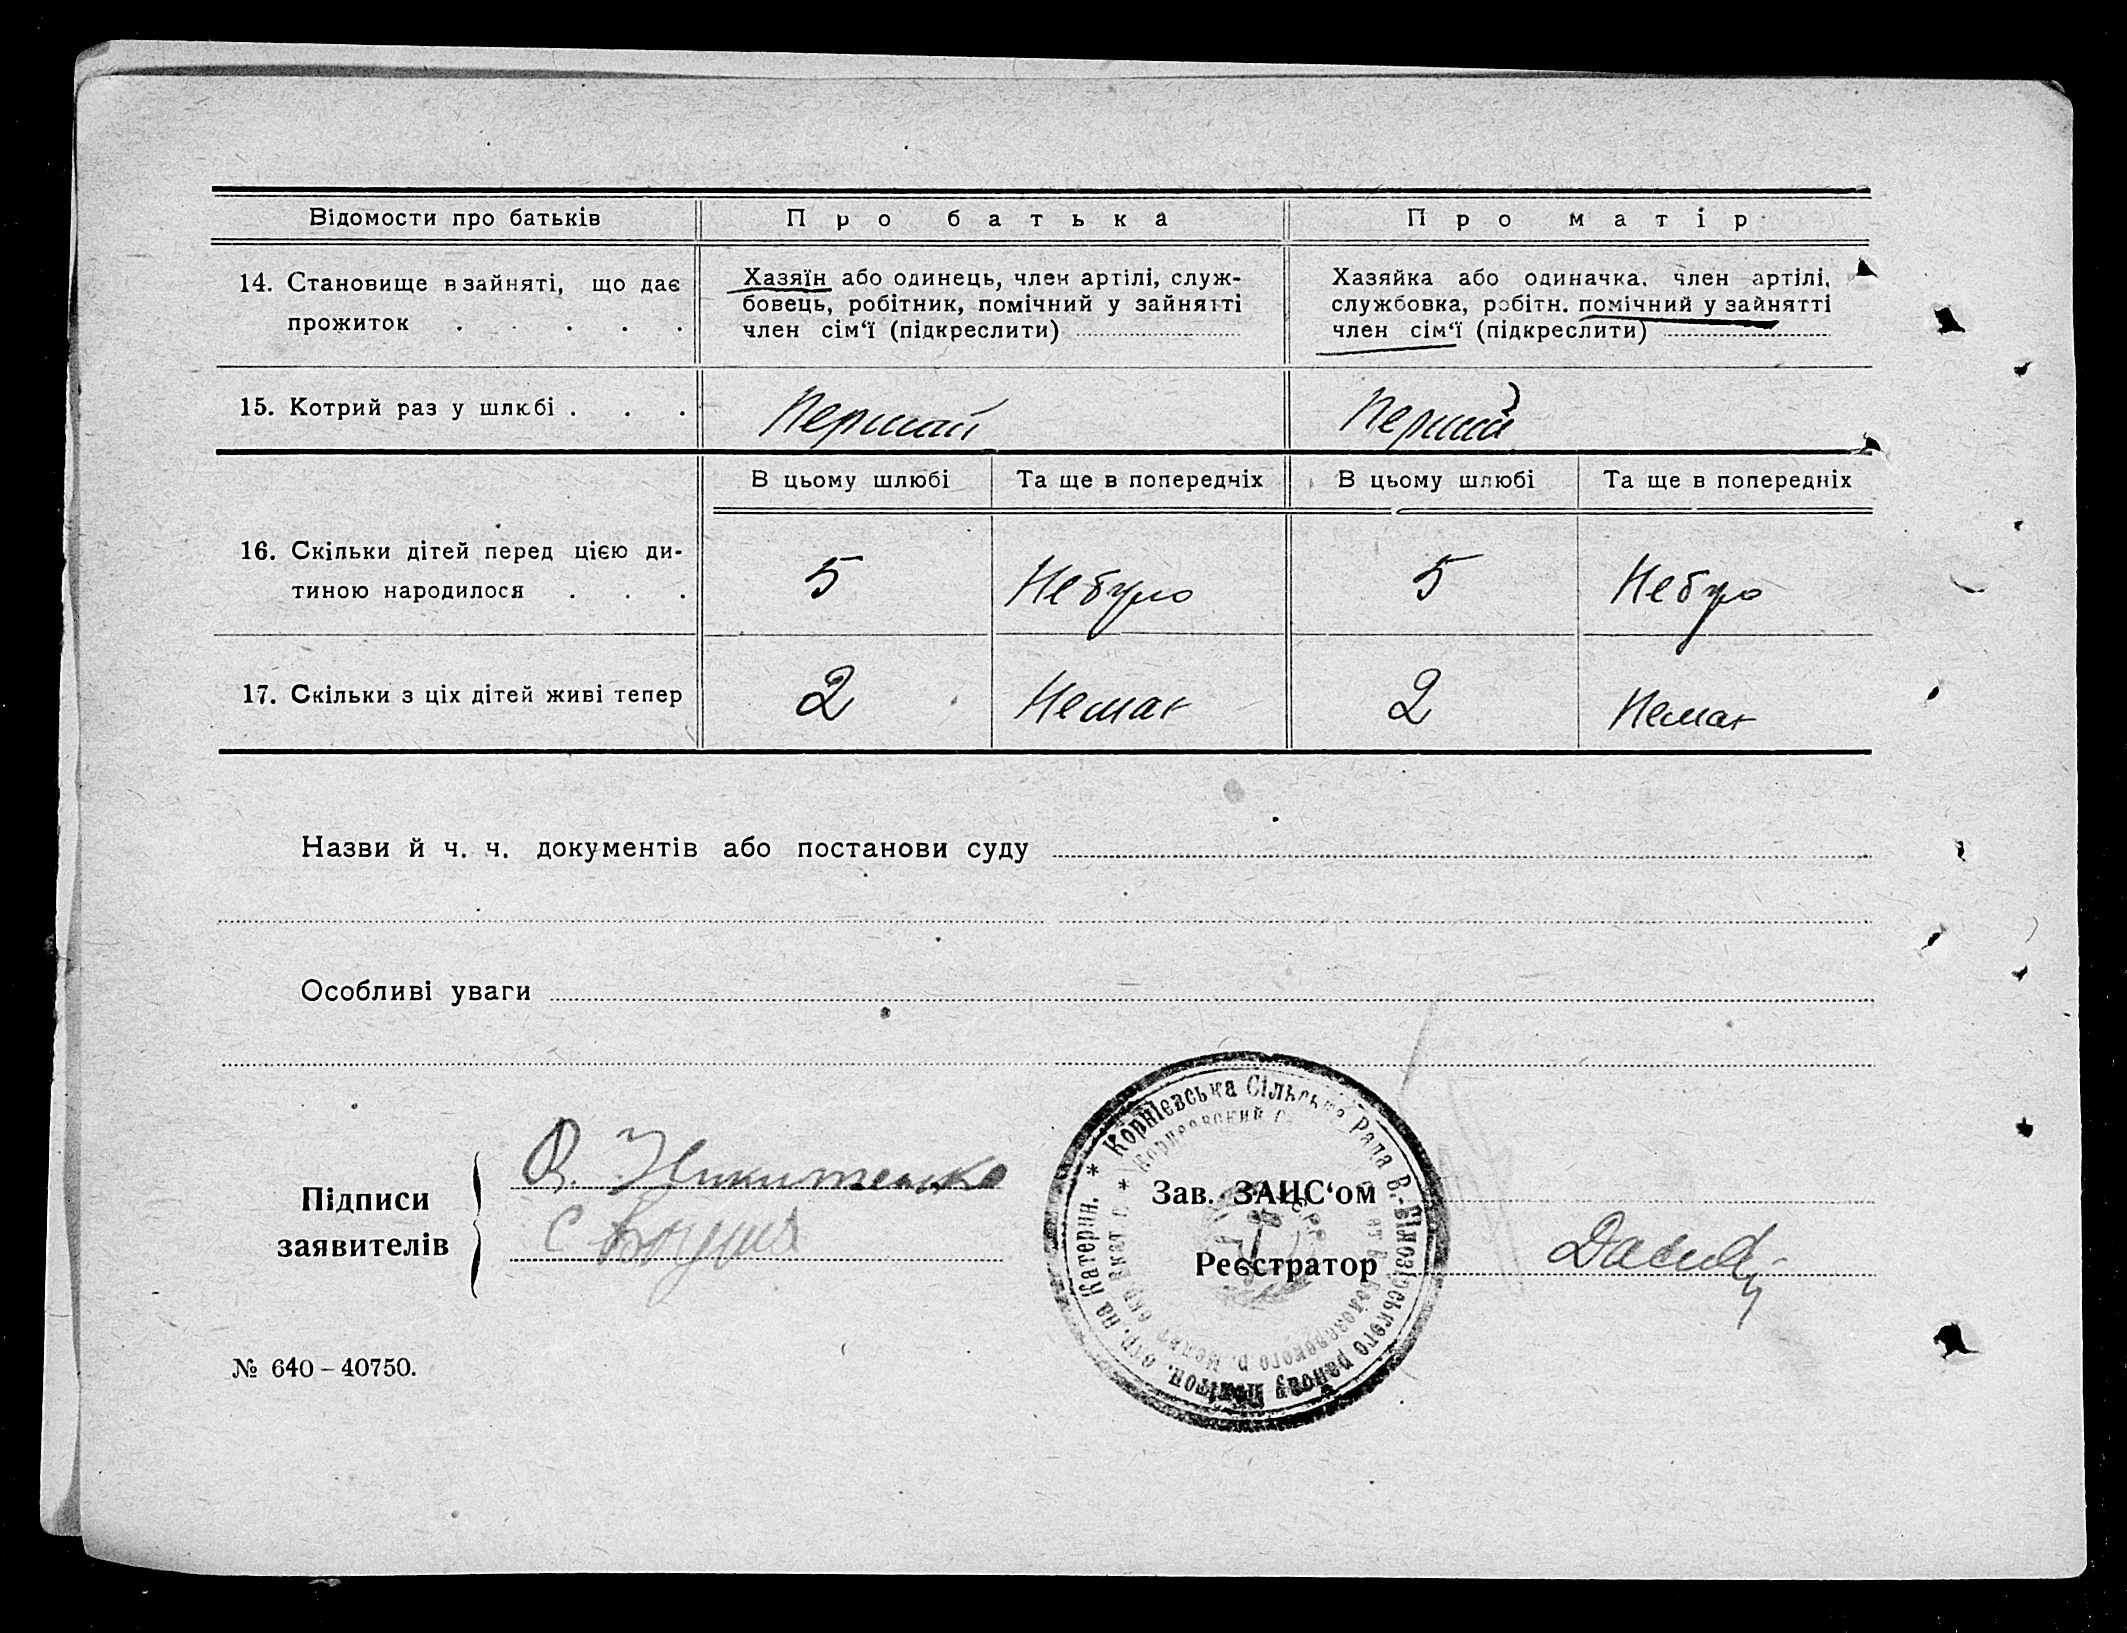 Відомости про батьків
Про батька
Про матір
14. Становище в зайняті, що дає
прожиток . . . .
Хазяїн або одинець, член артілі, служ-
бовець, робітник, помічний у зайнятті
член сім‘ї (підкреслити)
Хазяйка або одиначка, член артілі,
службовка, робітн. помічний у зайнятті
член сім‘ї (підкреслити)
15. Котрий раз у шлюбі . . .
Першай
Перший
В цьому шлюбі
Та ще в попередніх
В цьому шлюбі
Та ще в попередніх
16. Скільки дітей перед цією ди-
тиною народилося . . .
5
Небуло
5
Небуло
17. Скільки з ціх дітей живі тепер
2
Немає
2
Немає
Назви й ч. ч. документів або постанови суду
Особливі уваги
Підписи
заявителів
Никитенко
Зав. ЗАЦС‘ом
Реєстратор
* Корнієвська Сільська Рада В.-Білозірського району Мелітоп. окр. на Катерин.
№ 640–40750.